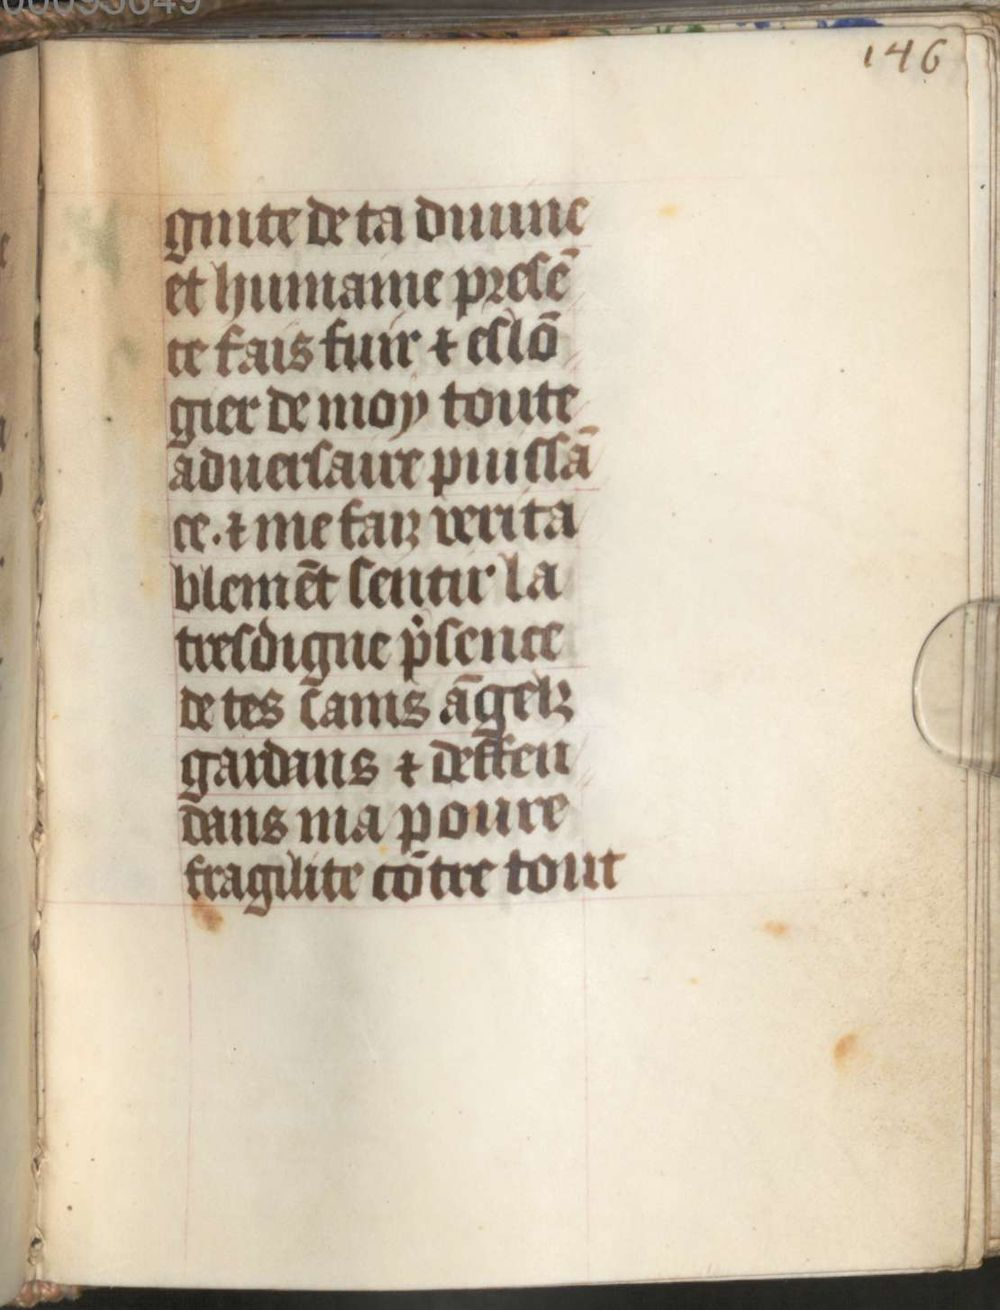 146
gnite de ta diuine
et humaine presē
te fais fuir ⁊ eslō
gier de moy toute
aduersaire puissā
ce. ⁊ me faiz verita
blemēt sentir la
tresdigne p̓sence
de tes sains āgelz
gardans ⁊ deffen
dans ma poure
fragilite cōtre tout